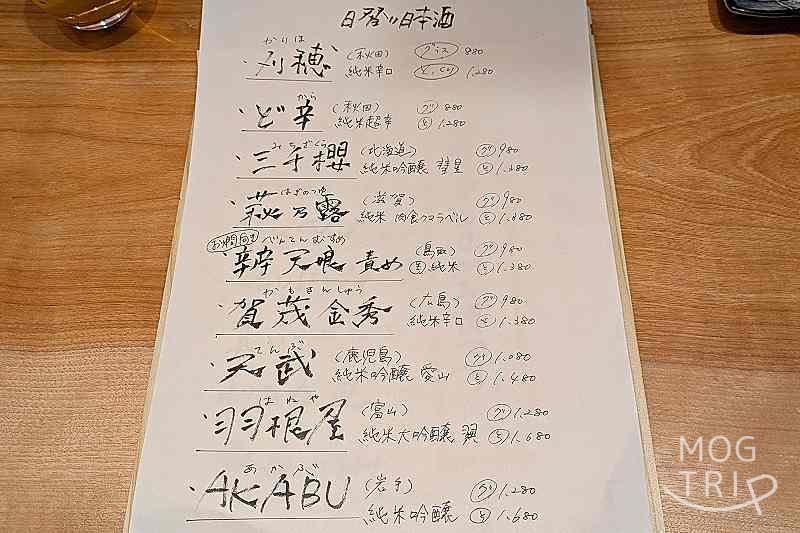 日替り日本酒
かりほ
・刈穂 (秋田) グラス 880
純米辛口 とっくり 1,280
から
・ど辛 (秋田) グ 880
純米超辛 と 1,280
みちざくら
・三千櫻 (北海道) グ 980
純米吟醸 彗星 と 1,380
はぎのつゆ
・萩乃露 (滋賀) グ 980
純米 肉食クマラベル と 1,380
お燗向き べんてんむすめ
・辨天娘 責め (鳥取) グ 980
純米 と 1,380
かもきんしゅう
・賀茂金秀 (広島) グ 980
純米辛口 と 1,380
てんぶ
・天武 (鹿児島) グ 1,080
純米吟醸 愛山 と 1,480
はねや
・羽根屋 (富山) グ 1,280
純米大吟醸 翼 と 1,680
あかぶ
・AKABU (岩手) グ 1,280
純米吟醸 と 1,680
MOG
TRIP